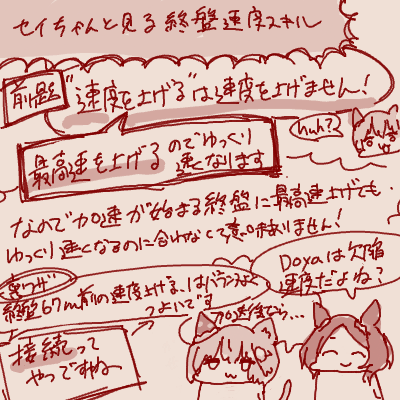 セイちゃんと見る終盤速度スキル
前題
"速度を上げる"は速度を上げません!
huh?
最高速を上げるのでゆっくり
速くなります
なので加速が始まる終盤に最高速上げても
ゆっくり速くなるのに合わなくて意味ありません!
Doyaは欠陥
速度だよね?
裏ワザ
終盤67m前の速度上げるはバランスよく
つよいです
接続って
やつですね